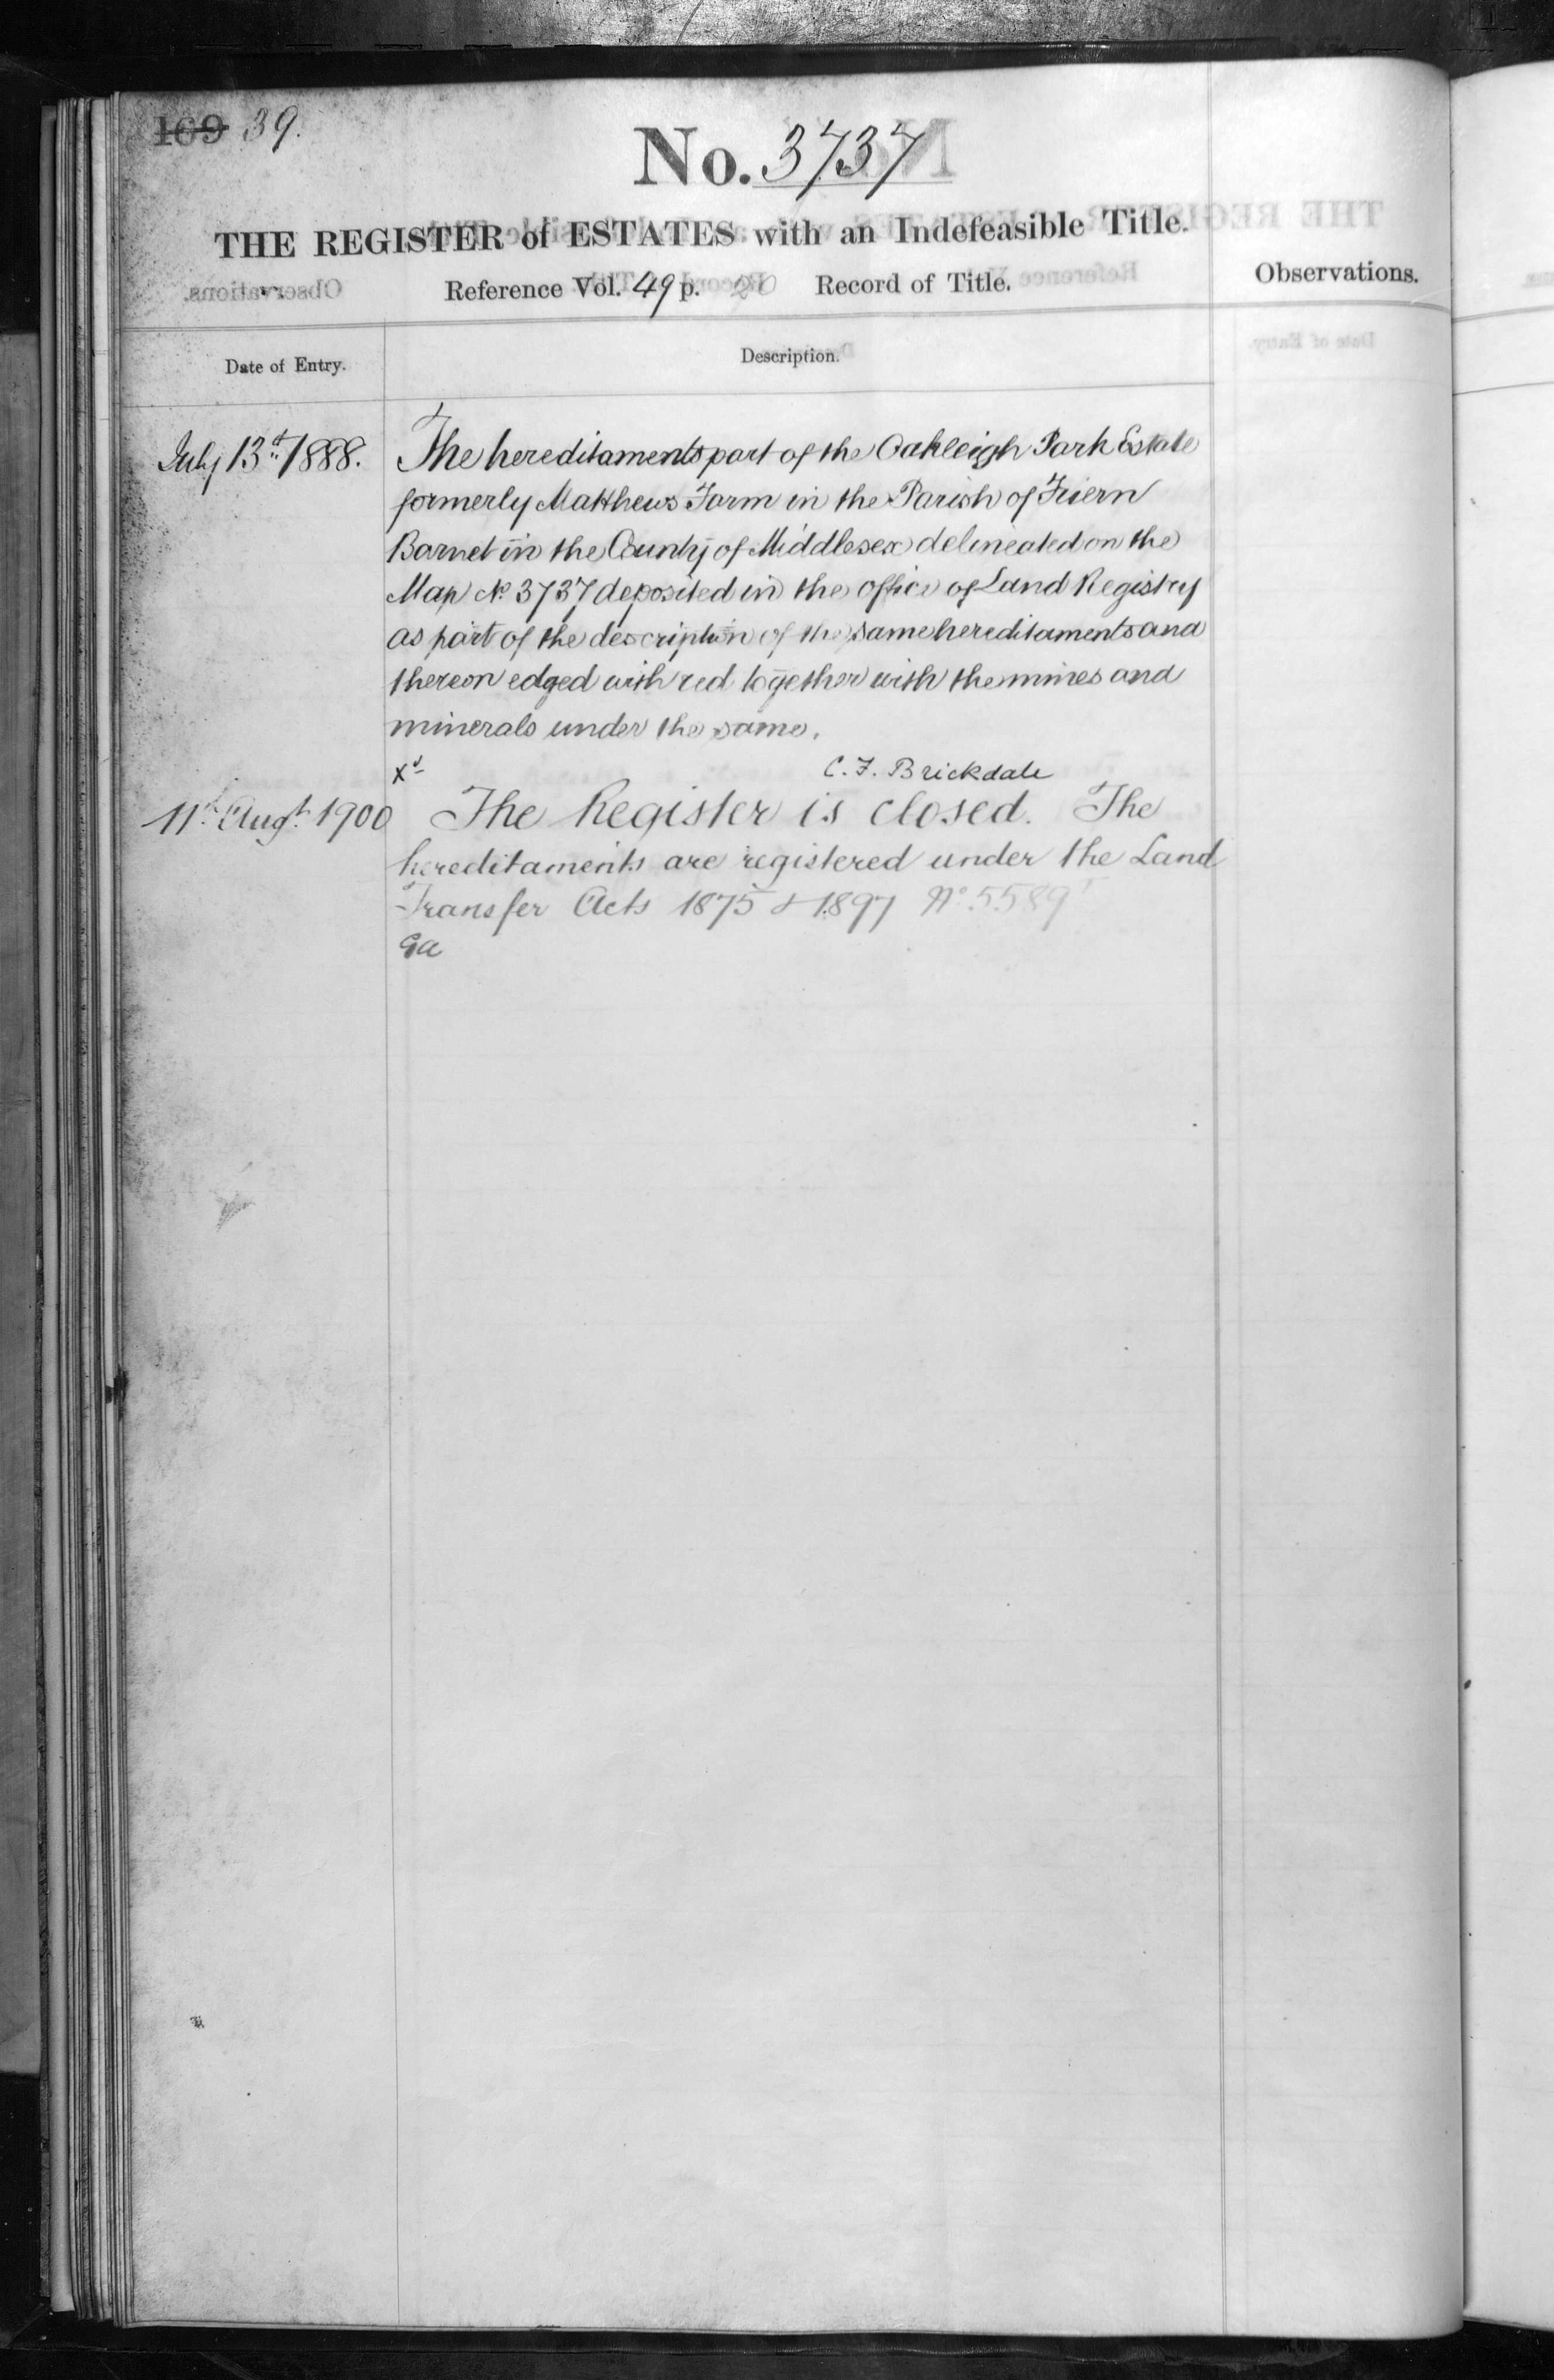 169 39.
No. 3737
THE REGISTER of ESTATES with an Indefeasible Title.
Reference Vol. 49 p. 20 Record of Title.
Observations.
Date of Entry.
Description.
July 13th 1888.
The hereditaments part of the Oakleigh Park Estate
formerly Matthews Farm in the Parish of Friern
Barnet in the County of Middlesex delineated on the
Map No. 3737 deposited in the office of Land Registry
as part of the description of the same hereditaments and
thereon edged with red together with the mines and
minerals under the same.
Xd
C. F. Brickdale
11th Augt. 1900
The Register is closed. The
hereditaments are registered under the Land
Transfer Acts 1875 & 1897 No 5589